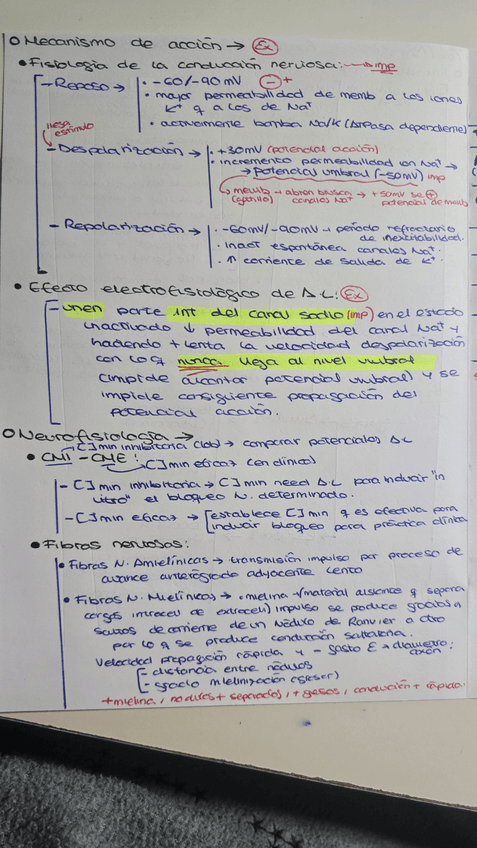 Mecanismo de acción → Ex
• Fisiología de la conducción nerviosa: → imp
- Reposo → • -60/-90 mV - +
• mayor permeabilidad de memb a los iones
K+ q a los de Na+
• activamente bomba Na/K (ATPasa dependiente)
llega estímulo
- Despolarización → • +30mV (potencial acción)
• incremento permeabilidad ion Na+ →
→ potencial umbral (-50mV) imp
memb → abren brusca → +50mV se +
canales Na+ potencial de memb
- Repolarización → • -60mV/-90mV → período refractario
de inexcitabilidad.
• Inact espontánea canales Na+
• ↑ corriente de salida de K+.
• Efecto electrofisiológico de A.L: Ex
- unen parte int del canal sodio (imp) en el estado
inactivado ↓ permeabilidad del canal Na+ y
haciendo + lenta la velocidad despolarización
con lo q nunca llega al nivel umbral
(impide alcanzar potencial umbral) y se
impide consiguiente propagación del
potencial acción.
Neurofisiología →
[ ] min inhibitoria (lab) → comparar potenciales A.L
• CMI - CME: [ ] min eficaz (en clínica)
- [ ] min inhibitoria → [ ] min need A.L para inducir "in
vitro" el bloqueo N. determinado.
- [ ] min eficaz → [establece [ ] min q es efectiva para
inducir bloqueo para práctica clínica
• Fibras nerviosas:
• Fibras N. Amielínicas → transmisión impulso por proceso de
avance anterógrado adyacente lento
• Fibras N. Mielínicas → • mielina → (material aislante q separa
cargas intracel de extracel) impulso se produce gracias a
saltos de corriente de un Nódulo de Ranvier a otro
por lo q se produce conducción saltatoria.
Velocidad propagación rápida y - gasto E → diametro axón:
- distancia entre nódulos
- grado mielinización (grosor)
+ mielina, nódulos + separados, + grosor, conducción + rápida.